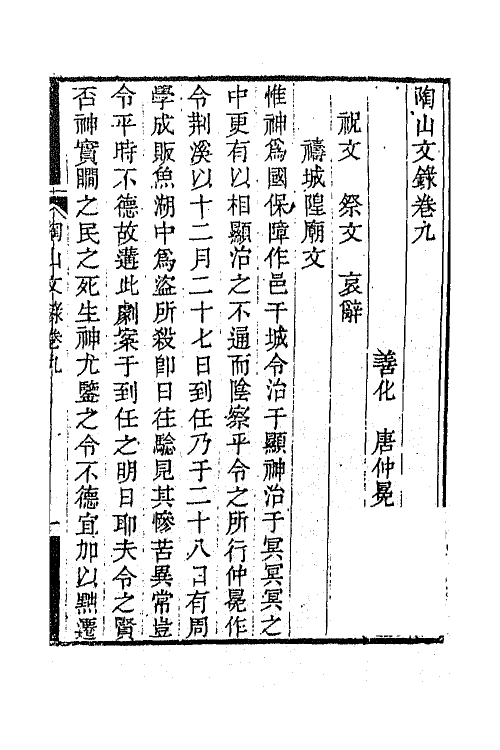 陶山文錄卷九
善化　唐仲冕
祝文　祭文　哀辭
禱城隍廟文
惟神爲國保障作邑干城令治于顯神治于冥冥冥之
中更有以相顯治之不逼而陰察乎令之所行仲冕作
令荆溪以十二月二十七日到任乃于二十八日有周
學成販魚湖中爲盜所殺卽日往驗見其慘苦異常豈
令平時不德故遘此劇案于到任之明日耶夫令之賢
否神實瞯之民之死生神尤鑒之令不德宜加以黜遷
陶山文錄卷九
一